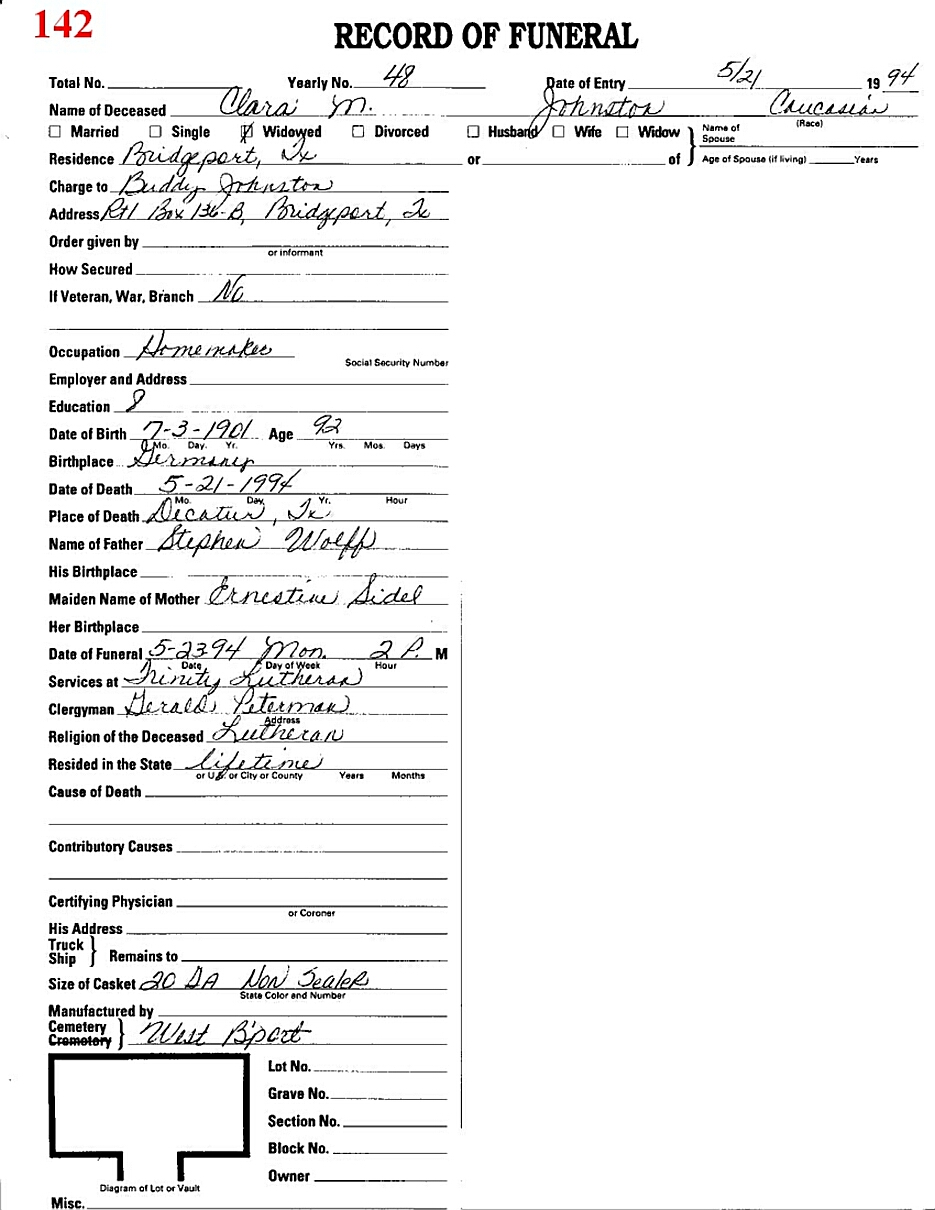 142
RECORD OF FUNERAL
Total No. Yearly No. 48 Date of Entry 5/21 19 94
Name of Deceased Clara M. Johnston Caucasian
(Race)
☐ Married ☐ Single ☑ Widowed ☐ Divorced ☐ Husband ☐ Wife ☐ Widow } Name of Spouse
Residence Bridgeport, Tx or of Age of Spouse (if living) Years
Charge to Buddy Johnston
Address Rt 1 Box 136-B, Bridgeport, Tx
Order given by
or informant
How Secured
If Veteran, War, Branch No
Occupation Homemaker
Social Security Number
Employer and Address
Education 8
Date of Birth 7-3-1901 Age 92
Mo. Day. Yr. Yrs. Mos. Days
Birthplace Germany
Date of Death 5-21-1994
Mo. Day. Yr. Hour
Place of Death Decatur, Tx
Name of Father Stephen Wolff
His Birthplace
Maiden Name of Mother Ernestine Sidel
Her Birthplace
Date of Funeral 5-23-94 Mon. 2 P. M
Date Day of Week Hour
Services at Trinity Lutheran
Clergyman Gerald Peterman
Address
Religion of the Deceased Lutheran
Resided in the State lifetime
or U.S. or City or County Years Months
Cause of Death
Contributory Causes
Certifying Physician
or Coroner
His Address
Truck
Ship } Remains to
Size of Casket 20 GA Non Sealer
State Color and Number
Manufactured by
Cemetery
Crematory } West B'port
Lot No.
Grave No.
Section No.
Block No.
Owner
Diagram of Lot or Vault
Misc.